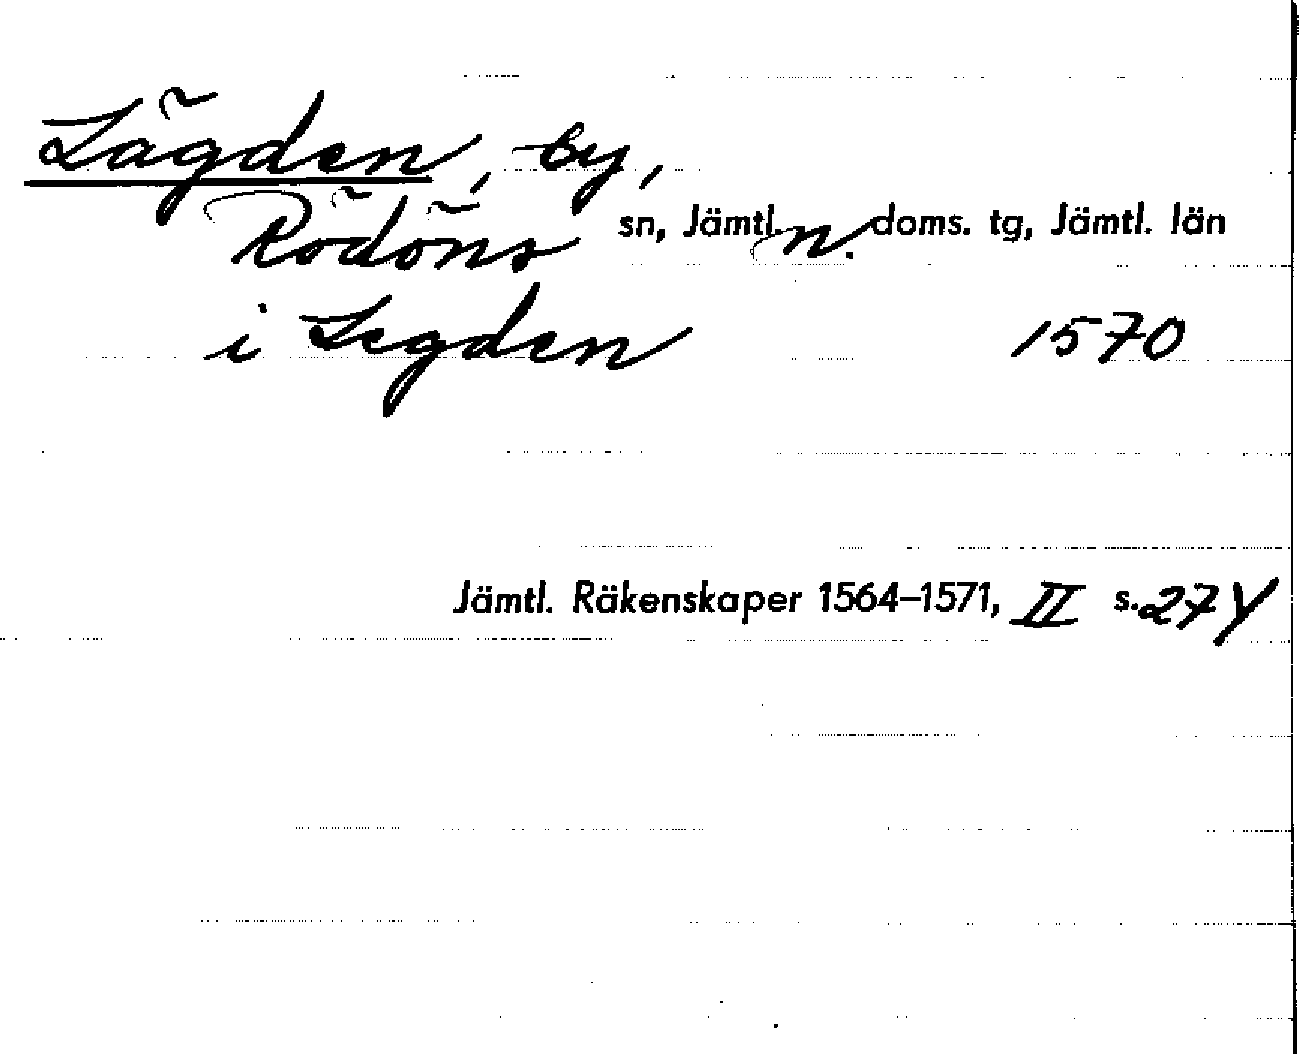 Lägden, by,
Rödöns sn, Jämtl. n. doms. tg, Jämtl. län
i Legden 1570
Jämtl. Räkenskaper 1564–1571, II s. 27